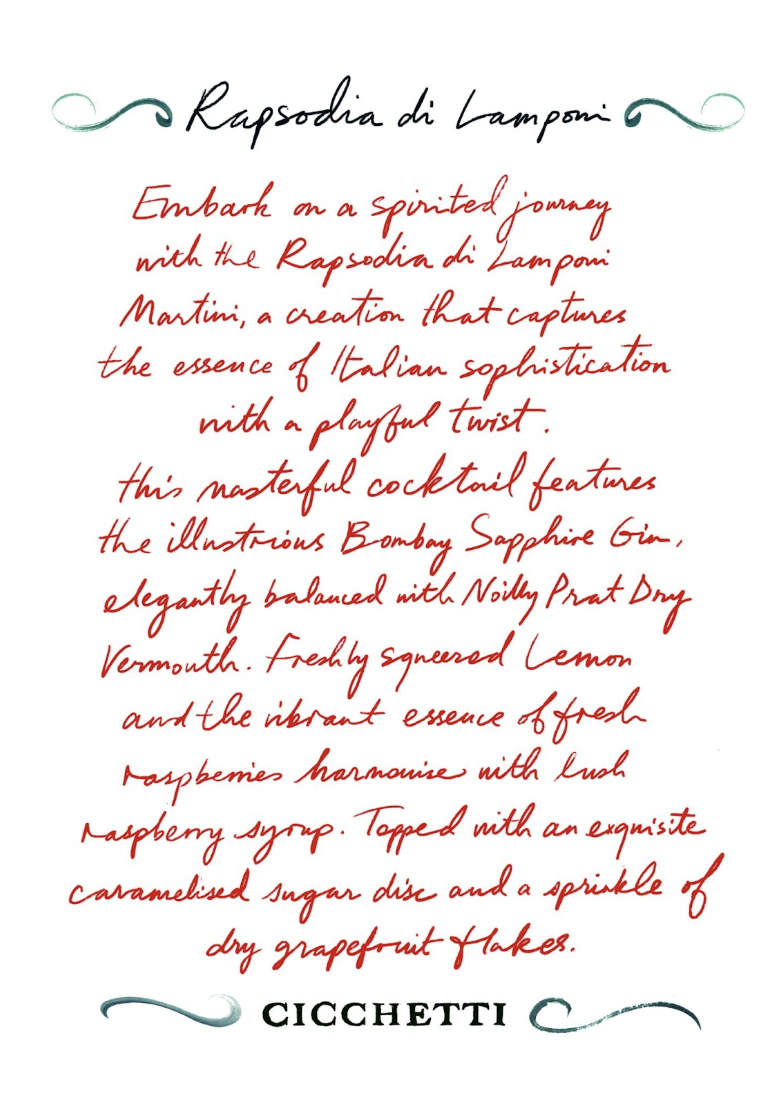 Rapsodia di Lamponi
Embark on a spirited journey
with the Rapsodia di Lamponi
Martini, a creation that captures
the essence of Italian sophistication
with a playful twist.
this masterful cocktail features
the illustrious Bombay Sapphire Gin,
elegantly balanced with Noilly Prat Dry
Vermouth. Freshly squeezed Lemon
and the vibrant essence of fresh
raspberries harmonise with lush
raspberry syrup. Topped with an exquisite
caramelised sugar disc and a sprinkle of
dry grapefruit flakes.
CICCHETTI